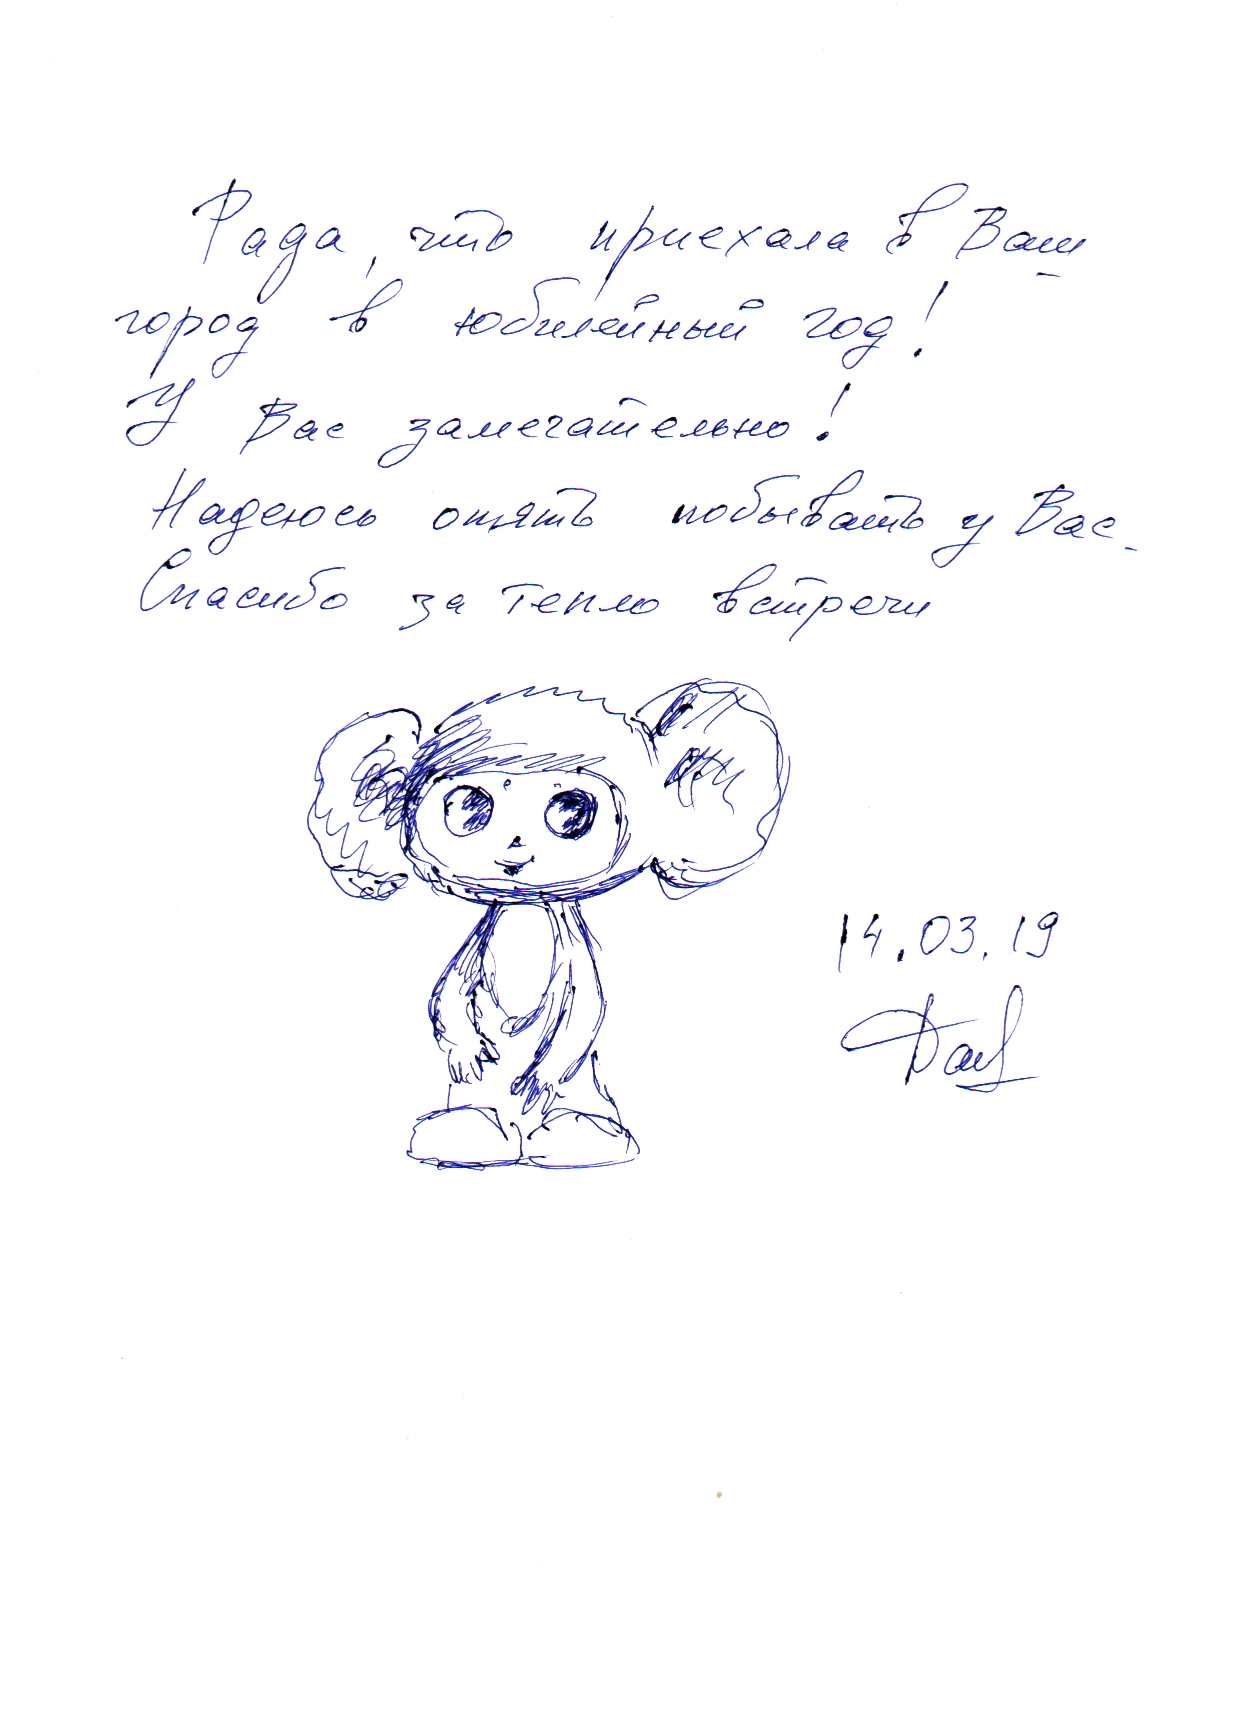 Рада, что приехала в Ваш
город в юбилейный год!
У Вас замечательно!
Надеюсь опять побывать у Вас.
Спасибо за тепло встречи
14.03.19